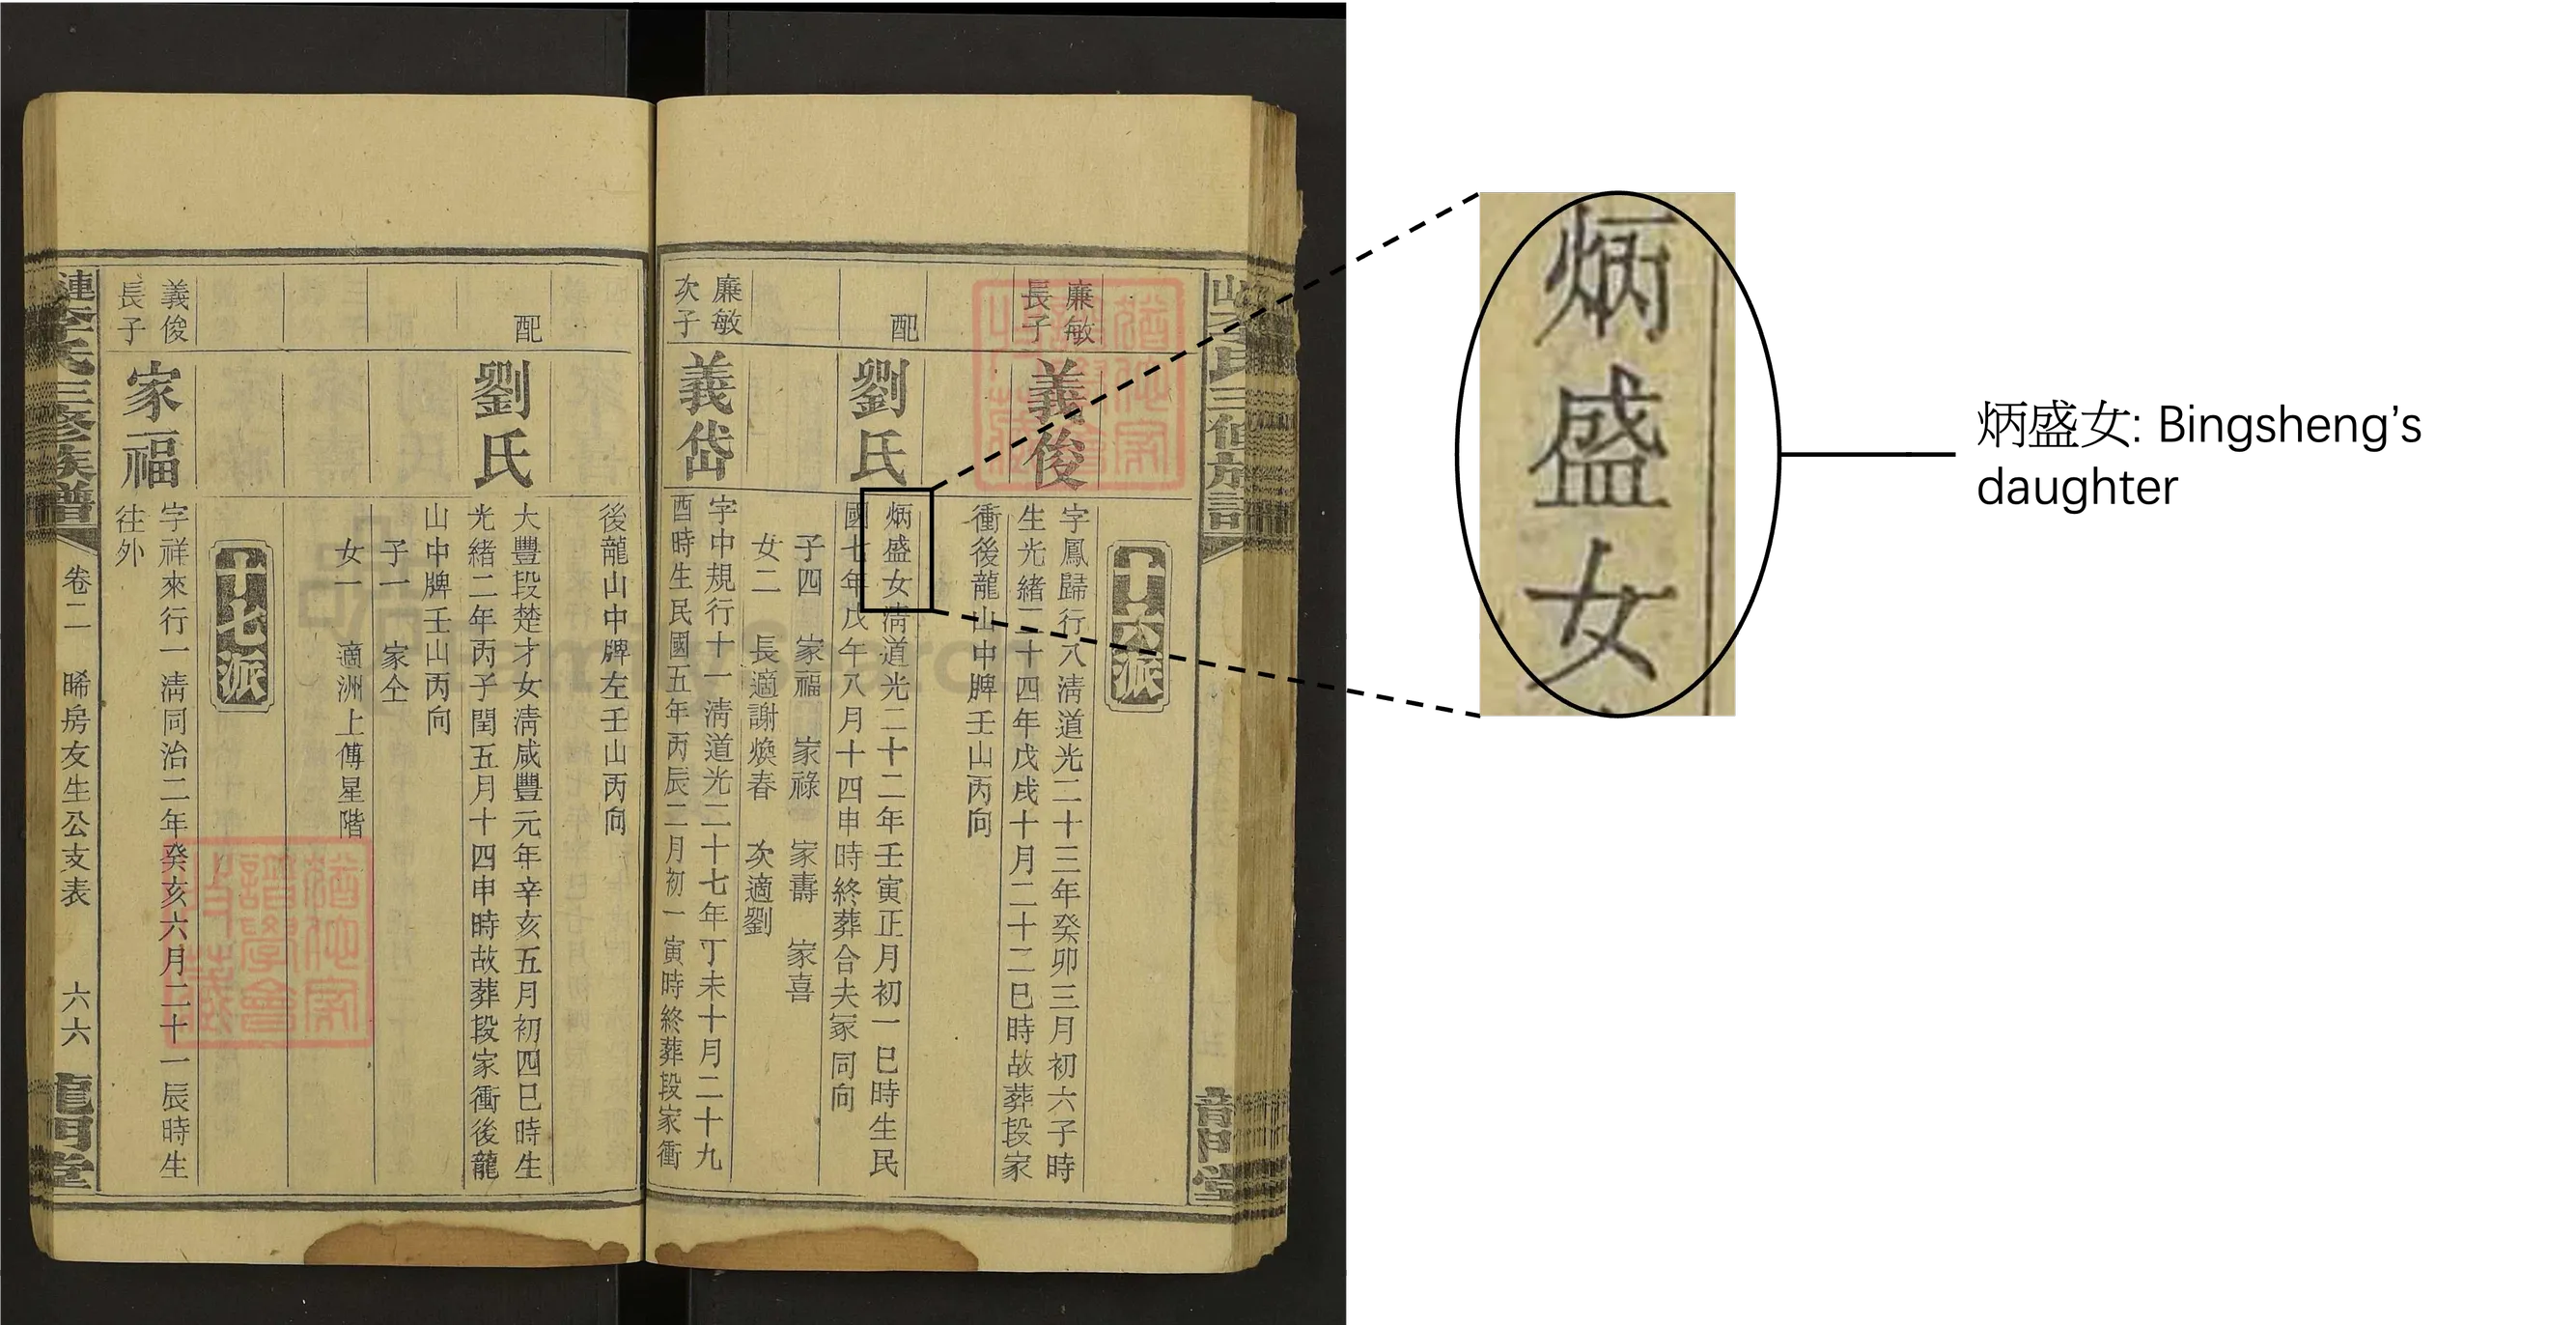 三修族譜
十六派
廉敏
長子
義俊
字鳳歸行八淸道光二十三年癸卯三月初六子時
生光緒二十四年戊戌十月二十二巳時故葬段家
衝後龍山中牌壬山丙向
配
劉氏
炳盛女淸道光二十二年壬寅正月初一巳時生民
國七年戊午八月十四申時終葬合夫冢同向
子四 家福 家祿 家壽 家喜
女二 長適謝煥春 次適劉
廉敏
次子
義岱
字中規行十一淸道光二十七年丁未十月二十九
酉時生民國五年丙辰二月初一寅時終葬段家衝
後龍山中牌左壬山丙向
配
劉氏
大豐段楚才女淸咸豐元年辛亥五月初四巳時生
光緒二年丙子閏五月十四申時故葬段家衝後龍
山中牌壬山丙向
子一 家仝
女一 適洲上傅星階
十七派
義俊
長子
家福
字祥來行一淸同治二年癸亥六月二十一辰時生
往外
漣李氏三修族譜 卷二 晞房友生公支表 六六 龍門堂
炳盛女
炳盛女: Bingsheng's
daughter